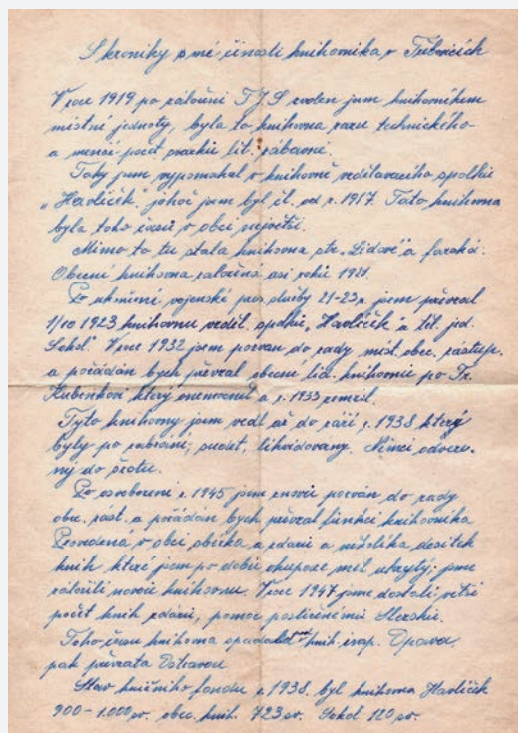 S kroniky s mé činosti knihovníka v Třebovicích
V roce 1919 po založení T.J.S zvolen jsem knihovníkem
místní jednoty, byla to knihovna razu technického
a menčí počet svazků lit. zábavné.
Taky jsem vypomahal v knihovně vzdělavacího spolku
"Havlíček" jehož jsem byl čl. od r. 1917. Tato knihovna
byla toho času v obci největší.
Mimo to tu stala knihovna str. "Lidové" a farská.
Obecní knihovna založená asi roku 1921.
Po ukončení vojenské pres. služby 21-23 r. jsem převzal
1/10 1923 knihovnu vzděl. spolku "Havlíček" a těl. jed.
Sokol" V roce 1932 jsem pozvan do rady míst. obec. zástup.
a požádán bych převzal obecní lid. knihovnu po Fr.
Kubenkovi který onemocněl a r. 1933 zemřel.
Tyto knihovny jsem vedl až do září r. 1938 který
byly po zabrání, sudet, likvidovany. Němci odveze-
ný do šrotu.
Po osvobození r. 1945 jsem znovu pozván do rady
obc. zást. a požádán bych převzal funkci knihovníka
Provedená v obci sbírka a zdaru a několika desitek
knih které jsem po dobu okupace měl ukrytý; jsme
založili novou knihovnu. V roce 1947 jsme dostali větší
počet knih zdáru, pomoc postiženému Slezsku.
Toho času knihovna spadala pod knih. insp. Opava.
pak převzata Ostravou
Stav knižního fondu r. 1938. byl knihovna Havlíček
900-1.000 sv. obec. knih. 723 sv. Sokol 120 sv.